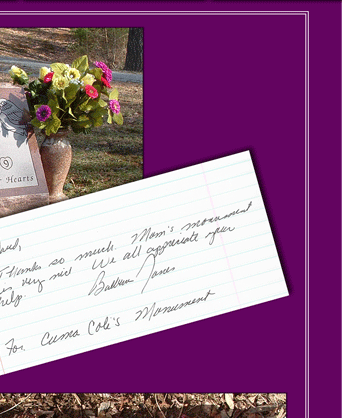 9
Hearts
Thanks so much. Mom's monument
very nice We all appreciate your
help.
Barbara Jones
For: Cuma Cole's Monument